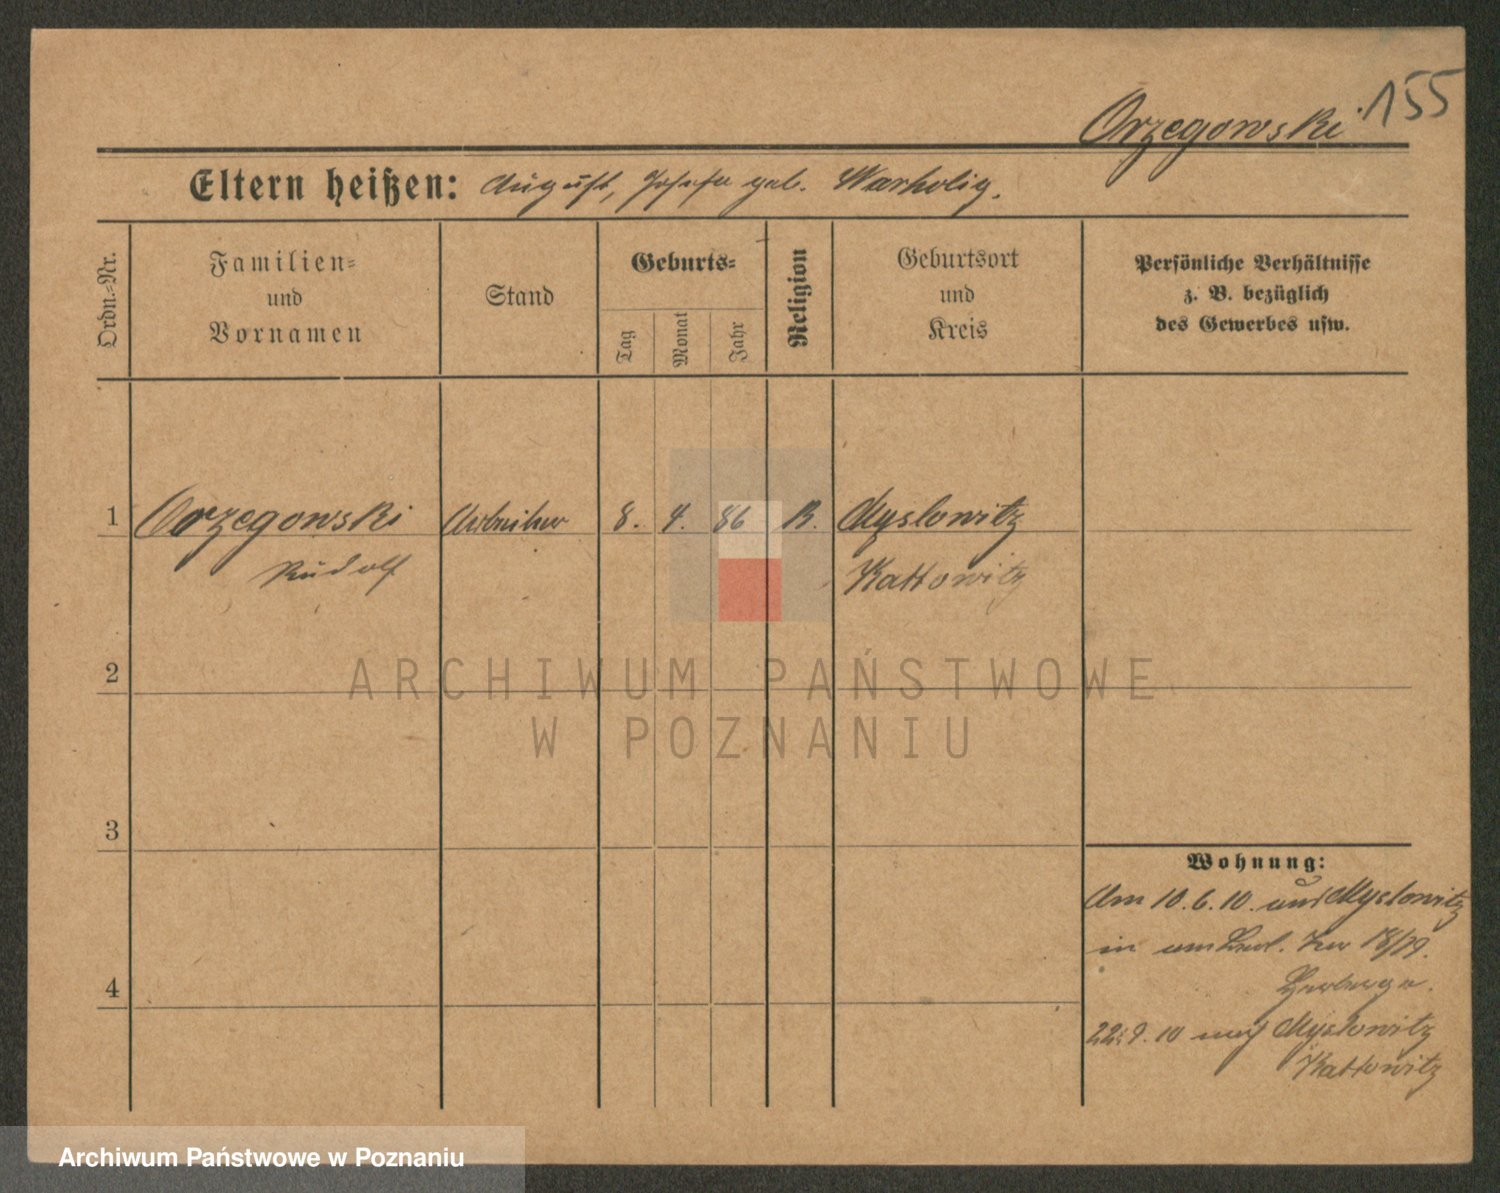 Orzegowski 155
Eltern heißen: August, Josefa geb. Warholig.
Ordn.-Nr.
Familien-
und
Vornamen
Stand
Geburts-
Tag
Monat
Jahr
Religion
Geburtsort
und
Kreis
Persönliche Verhältnisse
z. B. bezüglich
des Gewerbes usw.
1 Orzegowski Arbeiter 8. 4. 86 K. Myslowitz
Rudolf Kattowitz
2
ARCHIWUM PAŃSTWOWE
W POZNANIU
3
Wohnung:
Am 10.6.10. aus Myslowitz
in 18/19.
Herberge.
22.9.10 nach Myslowitz
Kattowitz
4
Archiwum Państwowe w Poznaniu